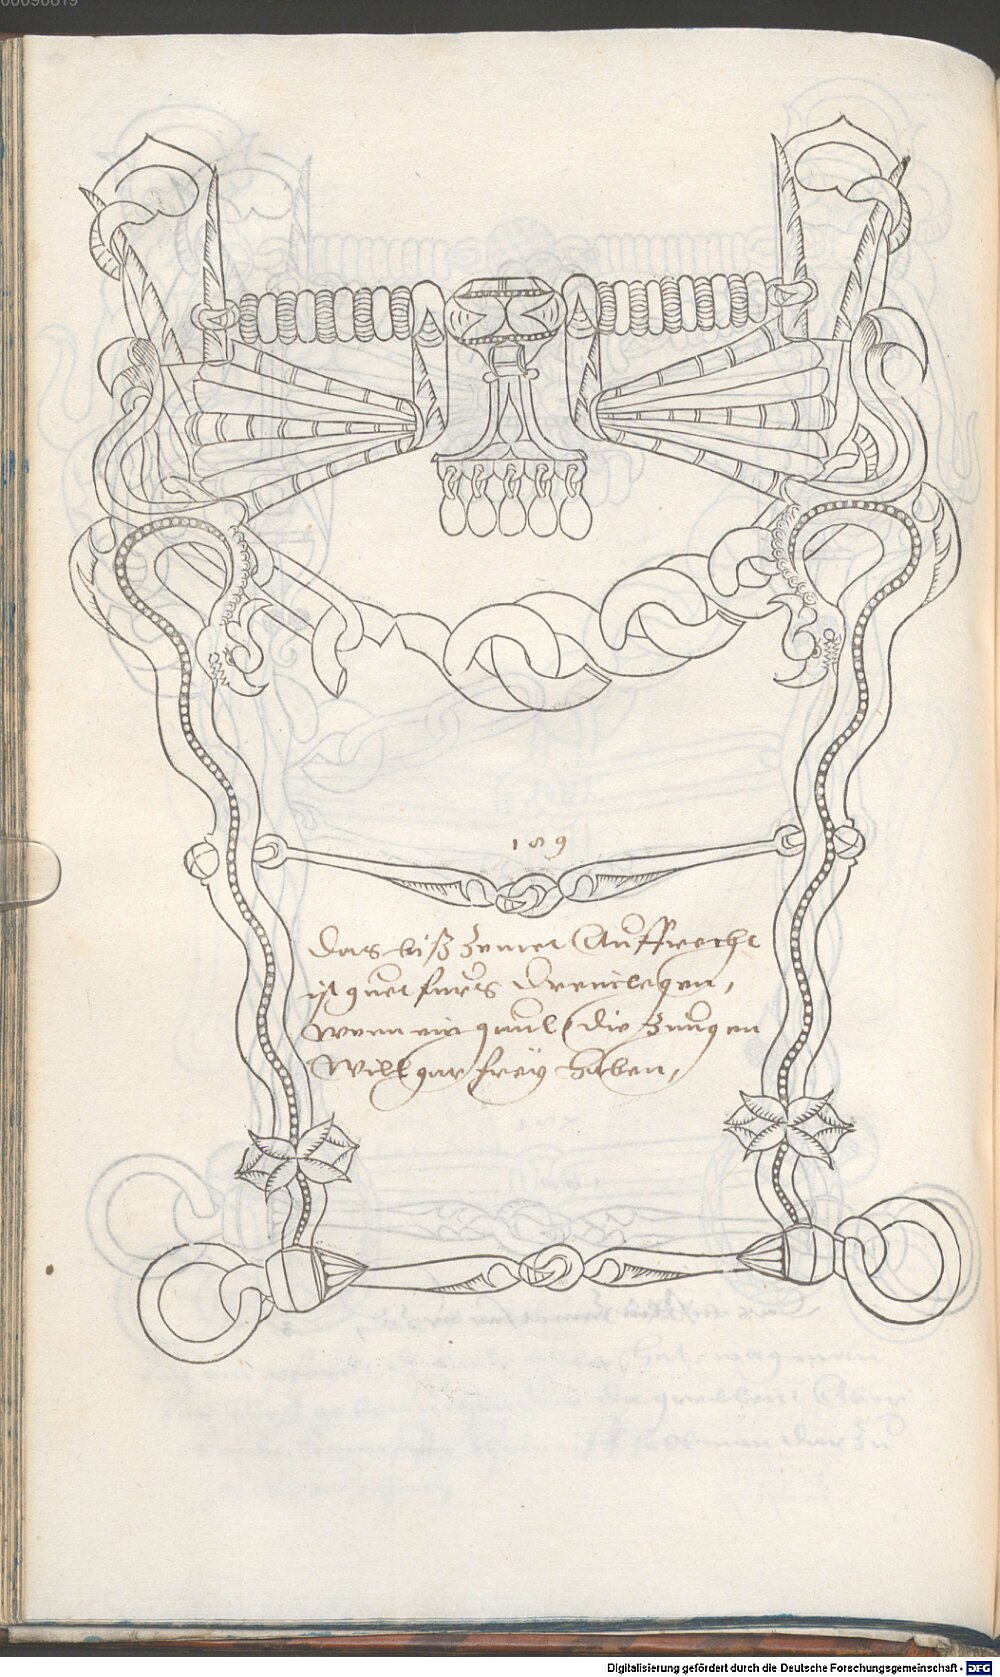 00090819
189
Das biß Zumet Auffrecht
ist guet furs Dreinlegen,
Wenn ein gaul die Zungen
Will gar freÿ haben,
Digitalisierung gefördert durch die Deutsche Forschungsgemeinschaft - DFG